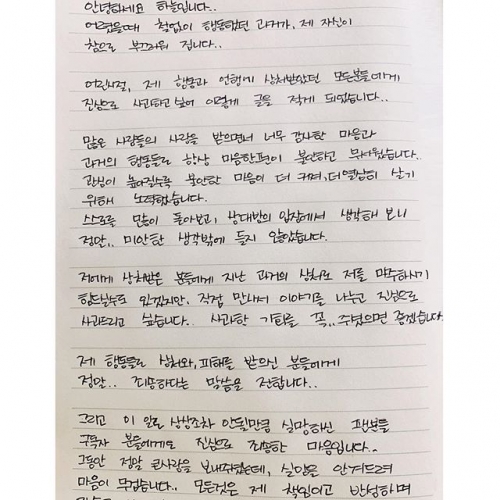 안녕하세요 하늘입니다..
어렸을때 철없이 행동했던 과거가, 제 자신이
참으로 부끄러워 집니다..
어린시절, 제 행동과 언행에 상처받았던 모든분들에게
진심으로 사과하고 싶어 이렇게 글을 적게 되었습니다..
많은 사람들의 사랑을 받으면서 너무 감사한 마음과
과거의 행동들로 항상 마음한편이 불안하고 무서웠습니다..
관심이 높아질수록 불안한 마음이 더 커져, 더 열심히 살기
위해 노력했습니다.
스스로를 많이 돌아보고, 상대방의 입장에서 생각해 보니
정말.. 미안한 생각밖에 들지 않았습니다.
저에게 상처받은 분들에게 지난 과거의 상처로 저를 마주하시기
힘드실수도 있겠지만, 직접 만나서 이야기를 나누고 진심으로
사과드리고 싶습니다.. 사과할 기회를 꼭.. 주셨으면 좋겠습니다
제 행동들로 상처와, 피해를 받으신 분들에게
정말.. 죄송하다는 말씀을 전합니다..
그리고 이 일로 상상조차 안될만큼 실망하신 팬분들
구독자 분들에게도 진심으로 죄송한 마음입니다..
그동안 정말 큰사랑을 보내주셨는데, 실망을 안겨드려
마음이 무겁습니다.. 모든것은 제 책임이고 반성하며